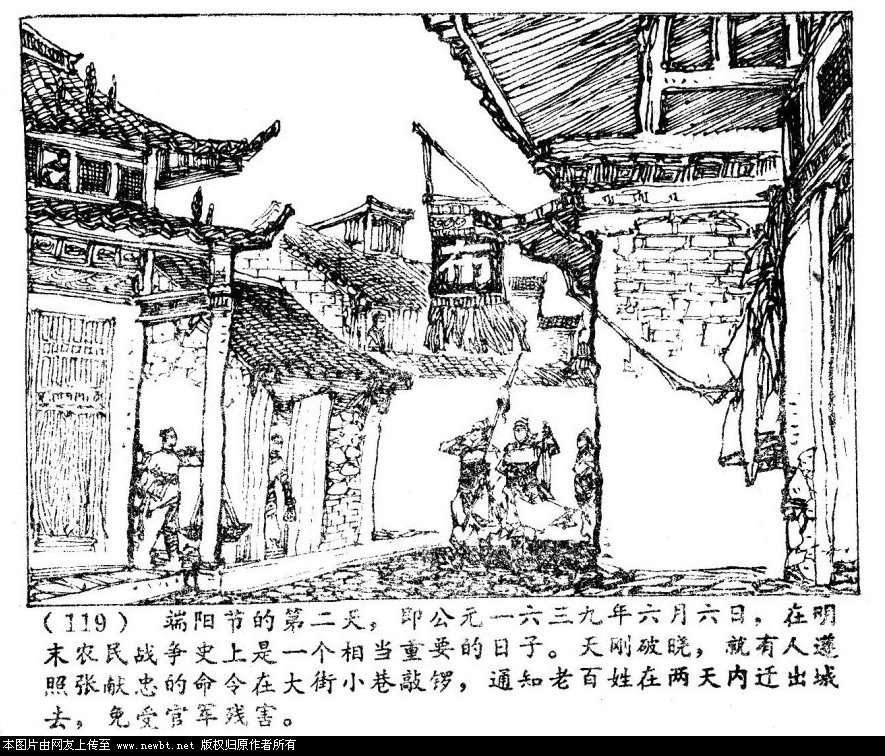 行
(119) 端阳节的第二天，即公元一六三九年六月六日，在明
末农民战争史上是一个相当重要的日子。天刚破晓，就有人遵
照张献忠的命令在大街小巷敲锣，通知老百姓在两天内迁出城
去，免受官军残害。
本图片由网友上传至 www.newbt.net 版权归原作者所有